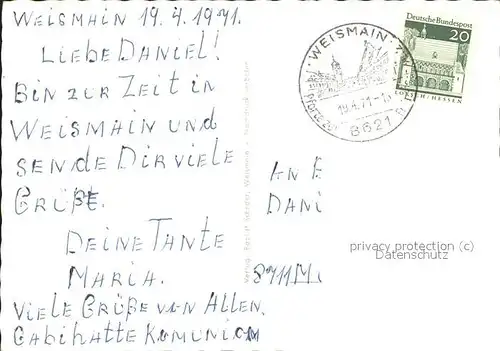 Weismain 19.4.1971.
Liebe Daniel!
Bin zur Zeit in
Weismain und
sende Dir viele
Grüße.
Deine Tante
Maria.
Viele Grüße von Allen.
Gabi hatte Komunion
An E
Dani
8711 M
WEISMAIN
19.4.71
8621
Deutsche Bundespost
20
LORSCH/HESSEN
privacy protection (c)
Datenschutz